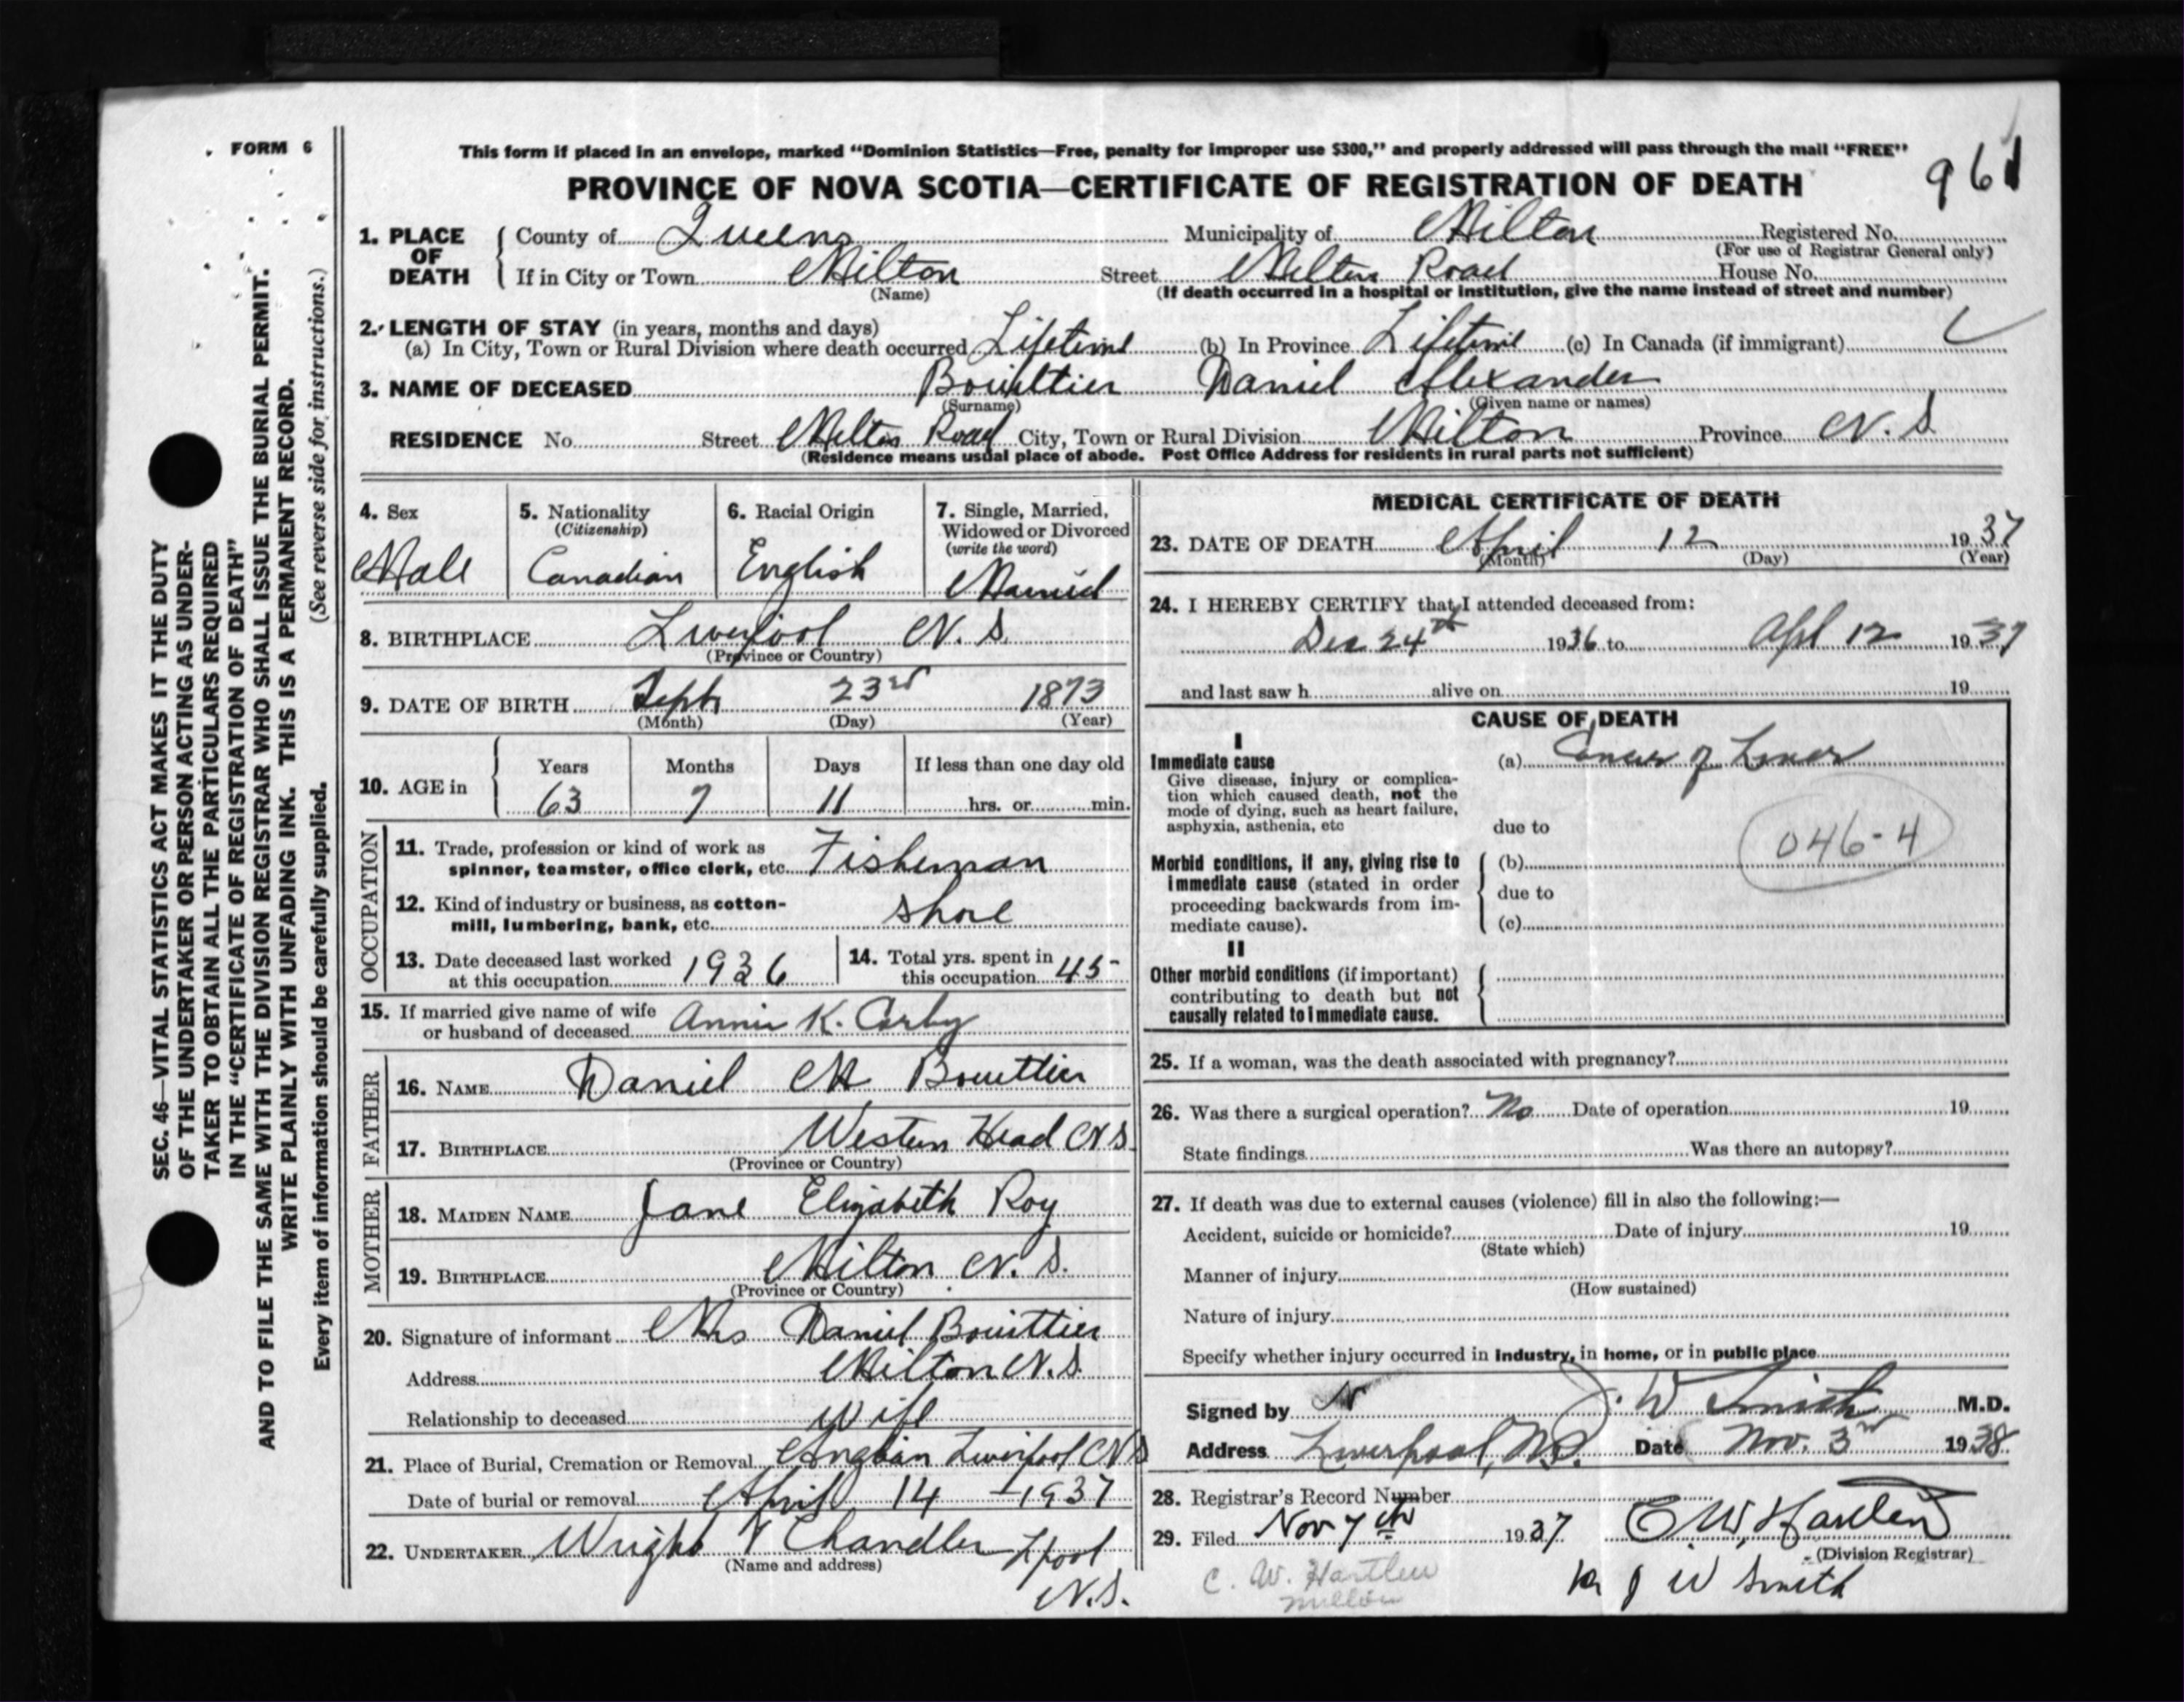 FORM 6
This form if placed in an envelope, marked "Dominion Statistics—Free, penalty for improper use $300," and properly addressed will pass through the mail "FREE"
961
PROVINCE OF NOVA SCOTIA—CERTIFICATE OF REGISTRATION OF DEATH
1. PLACE OF DEATH { County of Queens Municipality of Milton Registered No.
(For use of Registrar General only)
If in City or Town Milton Street Milton Road House No.
(Name) (If death occurred in a hospital or institution, give the name instead of street and number)
2. LENGTH OF STAY (in years, months and days)
(a) In City, Town or Rural Division where death occurred Lifetime (b) In Province Lifetime (c) In Canada (if immigrant)
3. NAME OF DECEASED Bouttier Daniel Alexander
(Surname) (Given name or names)
RESIDENCE No. Street Milton Road City, Town or Rural Division Milton Province N. S.
(Residence means usual place of abode. Post Office Address for residents in rural parts not sufficient)
SEC. 46—VITAL STATISTICS ACT MAKES IT THE DUTY
OF THE UNDERTAKER OR PERSON ACTING AS UNDER-
TAKER TO OBTAIN ALL THE PARTICULARS REQUIRED
IN THE "CERTIFICATE OF REGISTRATION OF DEATH"
AND TO FILE THE SAME WITH THE DIVISION REGISTRAR WHO SHALL ISSUE THE BURIAL PERMIT.
WRITE PLAINLY WITH UNFADING INK. THIS IS A PERMANENT RECORD.
Every item of information should be carefully supplied. (See reverse side for instructions.)
4. Sex
Male
5. Nationality
(Citizenship)
Canadian
6. Racial Origin
English
7. Single, Married,
Widowed or Divorced
(write the word)
Married
8. BIRTHPLACE Liverpool N. S.
(Province or Country)
9. DATE OF BIRTH Sept 23rd 1873
(Month) (Day) (Year)
10. AGE in { Years Months Days If less than one day old
63 7 11 hrs. or min.
OCCUPATION
11. Trade, profession or kind of work as
spinner, teamster, office clerk, etc. Fisherman
12. Kind of industry or business, as cotton-
mill, lumbering, bank, etc. Shore
13. Date deceased last worked
at this occupation 1936
14. Total yrs. spent in
this occupation 45
15. If married give name of wife
or husband of deceased Annie K. Corby
FATHER
16. NAME Daniel M Bouttier
17. BIRTHPLACE Western Head N S.
(Province or Country)
MOTHER
18. MAIDEN NAME Jane Elizabeth Roy
19. BIRTHPLACE Milton N. S.
(Province or Country)
20. Signature of informant Mrs Daniel Bouttier
Address Milton N. S.
Relationship to deceased Wife
21. Place of Burial, Cremation or Removal Liverpool N S
Date of burial or removal April 14 - 1937
22. UNDERTAKER Wright & Chandler Lpool
(Name and address)
N.S.
MEDICAL CERTIFICATE OF DEATH
23. DATE OF DEATH April 12 1937
(Month) (Day) (Year)
24. I HEREBY CERTIFY that I attended deceased from:
Dec 24th 1936 to Apl 12 1937
and last saw h alive on 19
CAUSE OF DEATH
I
Immediate cause
Give disease, injury or complica-
tion which caused death, not the
mode of dying, such as heart failure,
asphyxia, asthenia, etc
(a) Cancer of Liver
due to
046-4
Morbid conditions, if any, giving rise to
immediate cause (stated in order
proceeding backwards from im-
mediate cause).
(b)
due to
(c)
II
Other morbid conditions (if important)
contributing to death but not
causally related to immediate cause.
25. If a woman, was the death associated with pregnancy?
26. Was there a surgical operation? No Date of operation 19
State findings Was there an autopsy?
27. If death was due to external causes (violence) fill in also the following:—
Accident, suicide or homicide? Date of injury 19
(State which)
Manner of injury
(How sustained)
Nature of injury
Specify whether injury occurred in industry, in home, or in public place
Signed by J. W Smith M.D.
Address Liverpool, N.S. Date Nov. 3rd 1938
28. Registrar's Record Number
29. Filed Nov 7th 1937 C. W. Hartlen
(Division Registrar)
C. W. Hartlen
Milton
J W Smith